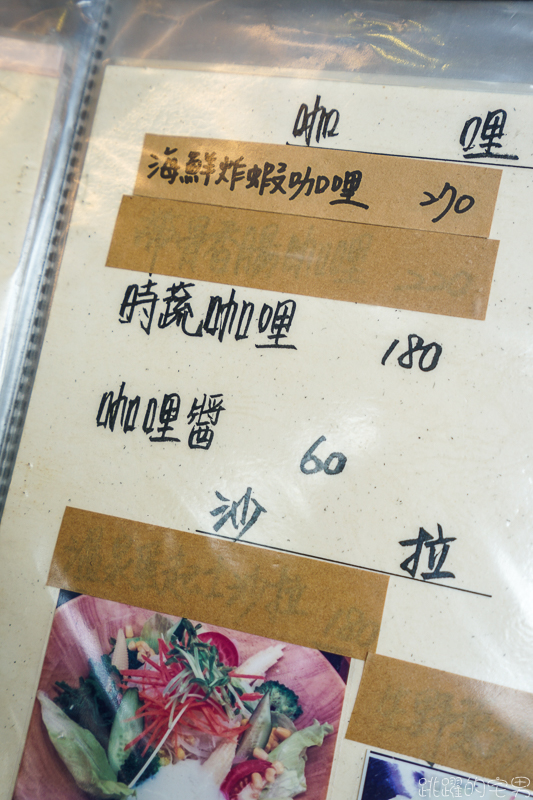 咖哩
海鮮炸蝦咖哩 270
時蔬咖哩 180
咖哩醬 60
沙拉
跳躍的宅男